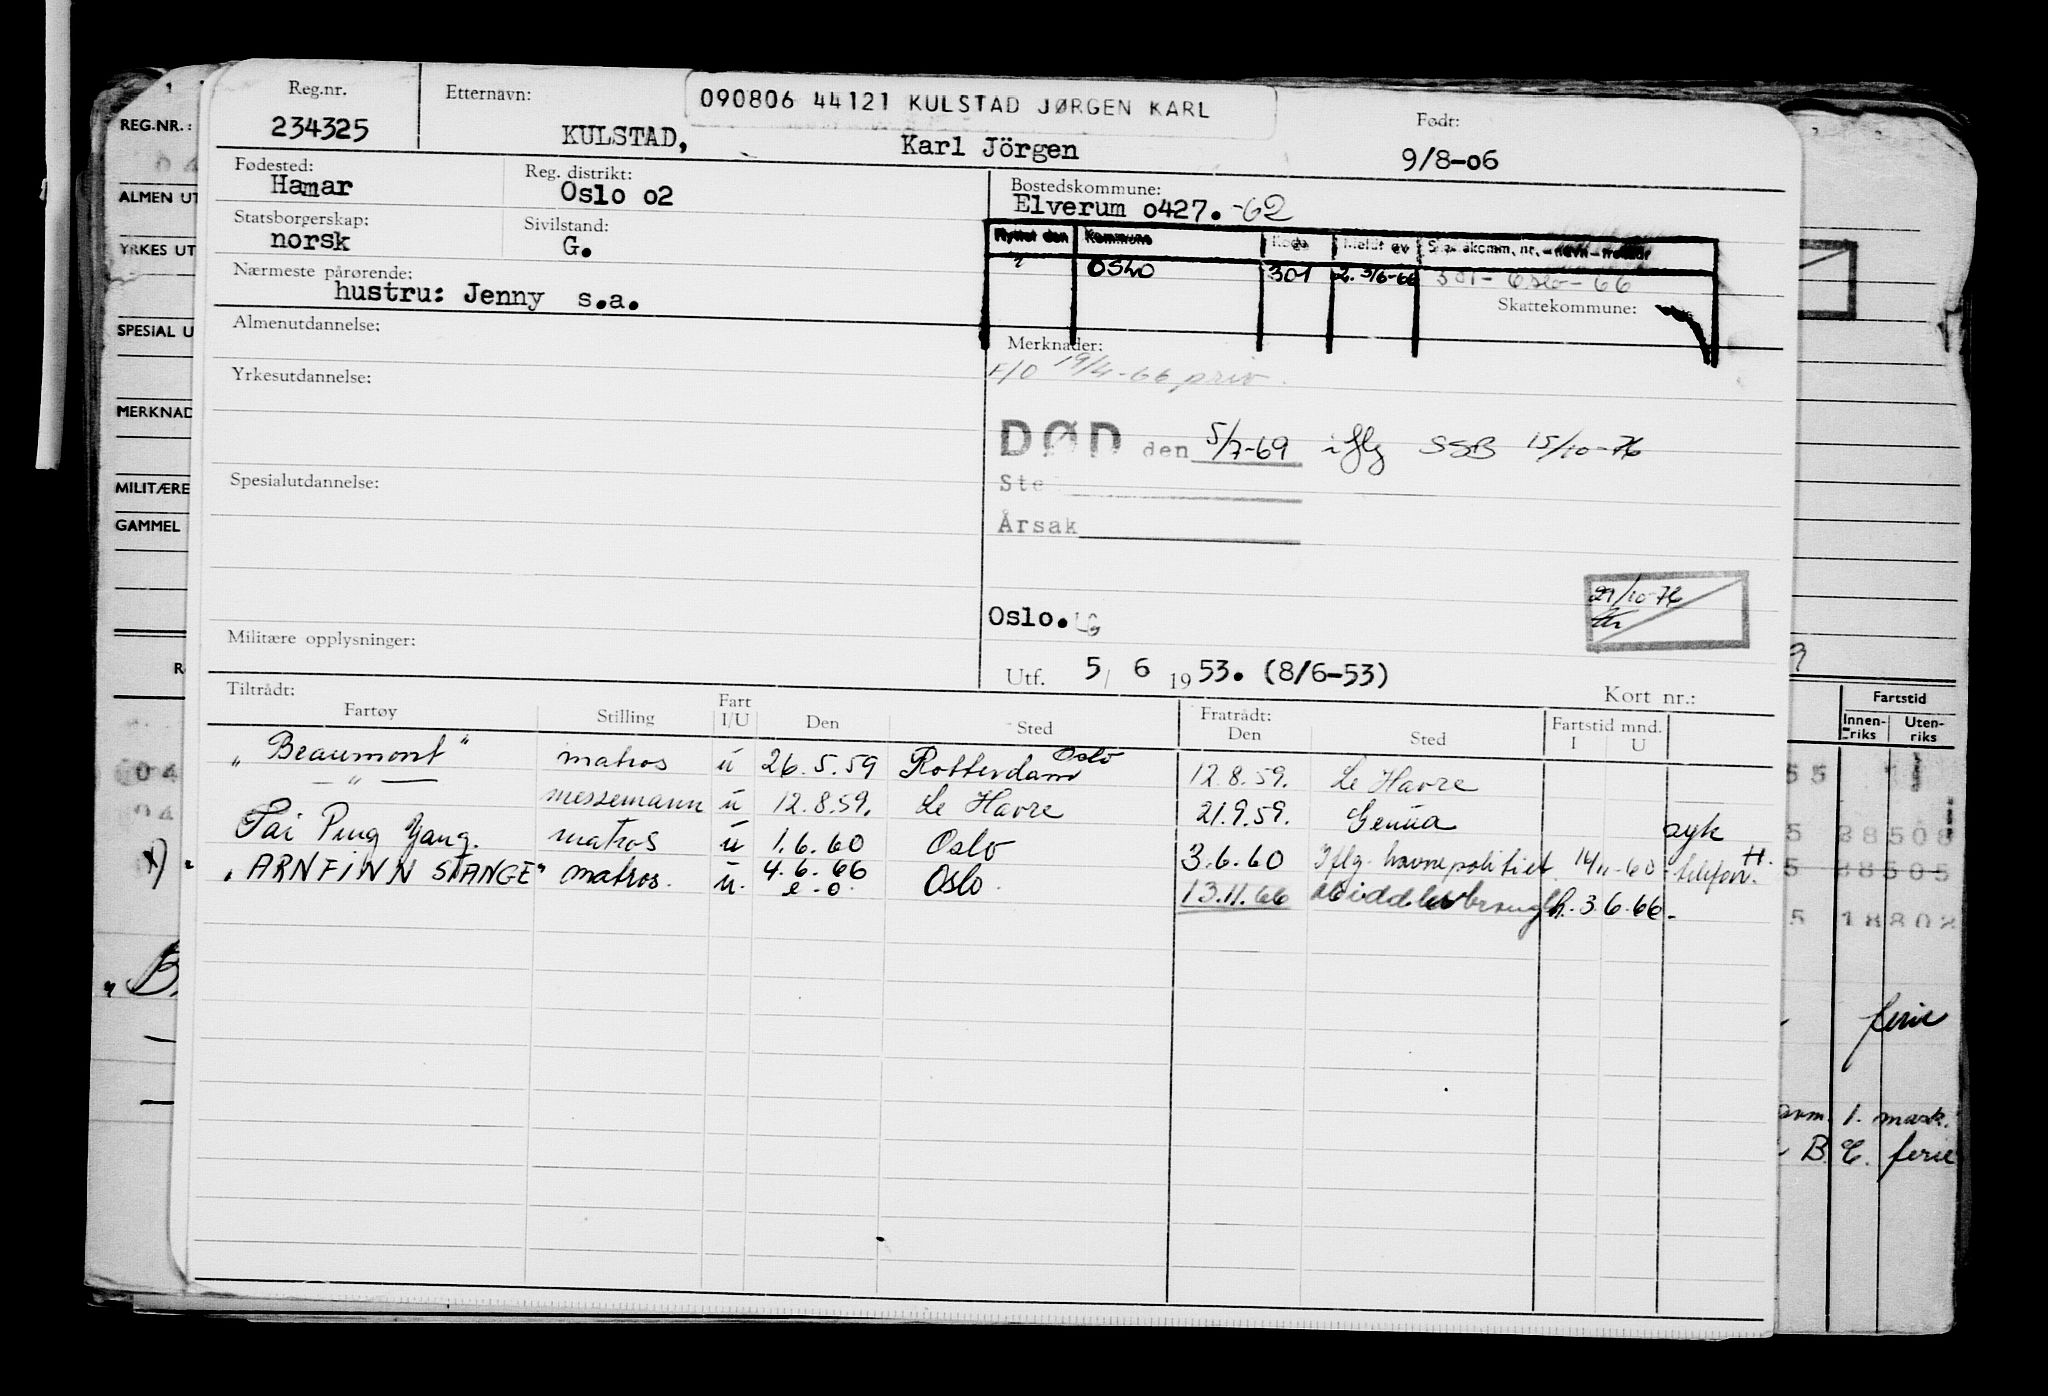 Reg.nr.
234325
Etternavn:
090806 44121 KULSTAD JØRGEN KARL
KULSTAD, Karl Jörgen
Født:
9/8-06
Fødested:
Hamar
Reg. distrikt:
Oslo 02
Bostedskommune:
Elverum 0427. -62
Statsborgerskap:
norsk
Sivilstand:
G.
Flyttet den Kommune Kode Meldt av
" OSLO 301 2. 3/6-66 301 - Oslo - 66
Skattekommune:
Nærmeste pårørende:
hustru: Jenny s.a.
Almenutdannelse:
Merknader:
F/O 19/4-66 priv.
Yrkesutdannelse:
DØD den 5/7-69 iflg SSB 15/10-76
Spesialutdannelse:
Ste
Årsak
29/10-76
Oslo.
Militære opplysninger:
Utf. 5/ 6 1953. (8/6-53)
Kort nr.:
Tiltrådt:
Fartøy Stilling Fart I/U Den Sted Fratrådt: Den Sted Fartstid mnd. I U
"Beaumont" matros u 26.5.59 Rotterdam Oslo 12.8.59. Le Havre
— " — messemann u 12.8.59. Le Havre 21.9.59. Genua syk
Tai Ping Yang. matros u 1.6.60 Oslo 3.6.60 Iflg. havnepolitiet 14/11-60 telefon.
"ARNFINN STANGE" matros. u. 4.6.66 e.o. Oslo. 13.11.66 Middlesbrough h. 3.6.66.
REG.NR.:
04
ALMEN UT
YRKES UT
SPESIAL U
MERKNAD
MILITÆRE
GAMMEL
R
04
04
x)
"B.
9
Fartstid
Innen-riks Uten-riks
55
5 38508
5 38505
5 18802
ferie
1. mask.
B. ferie